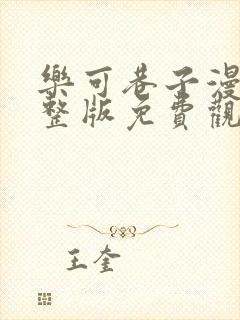 樂可巷子漫
整版免費觀
王奎